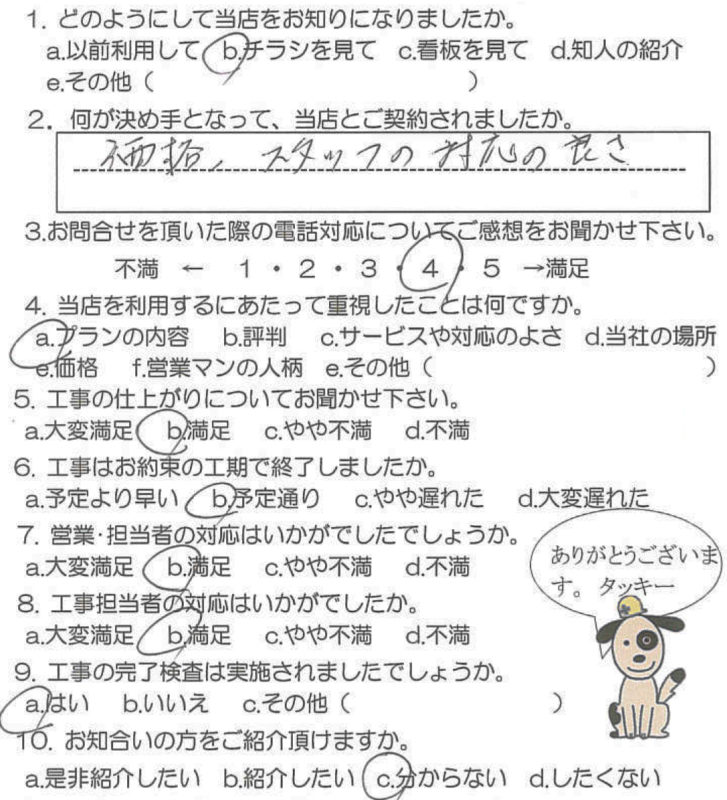 1. どのようにして当店をお知りになりましたか。
a.以前利用して b.チラシを見て c.看板を見て d.知人の紹介
e.その他（ ）
2. 何が決め手となって、当店とご契約されましたか。
価格、スタッフの対応の良さ
3.お問合せを頂いた際の電話対応についてご感想をお聞かせ下さい。
不満 ← 1・2・3・4・5 →満足
4. 当店を利用するにあたって重視したことは何ですか。
a.プランの内容 b.評判 c.サービスや対応のよさ d.当社の場所
e.価格 f.営業マンの人柄 e.その他（ ）
5. 工事の仕上がりについてお聞かせ下さい。
a.大変満足 b.満足 c.やや不満 d.不満
6. 工事はお約束の工期で終了しましたか。
a.予定より早い b.予定通り c.やや遅れた d.大変遅れた
7. 営業・担当者の対応はいかがでしたでしょうか。
a.大変満足 b.満足 c.やや不満 d.不満
ありがとうございま
す。 タッキー
8. 工事担当者の対応はいかがでしたか。
a.大変満足 b.満足 c.やや不満 d.不満
9. 工事の完了検査は実施されましたでしょうか。
a.はい b.いいえ c.その他（ ）
10. お知合いの方をご紹介頂けますか。
a.是非紹介したい b.紹介したい c.分からない d.したくない